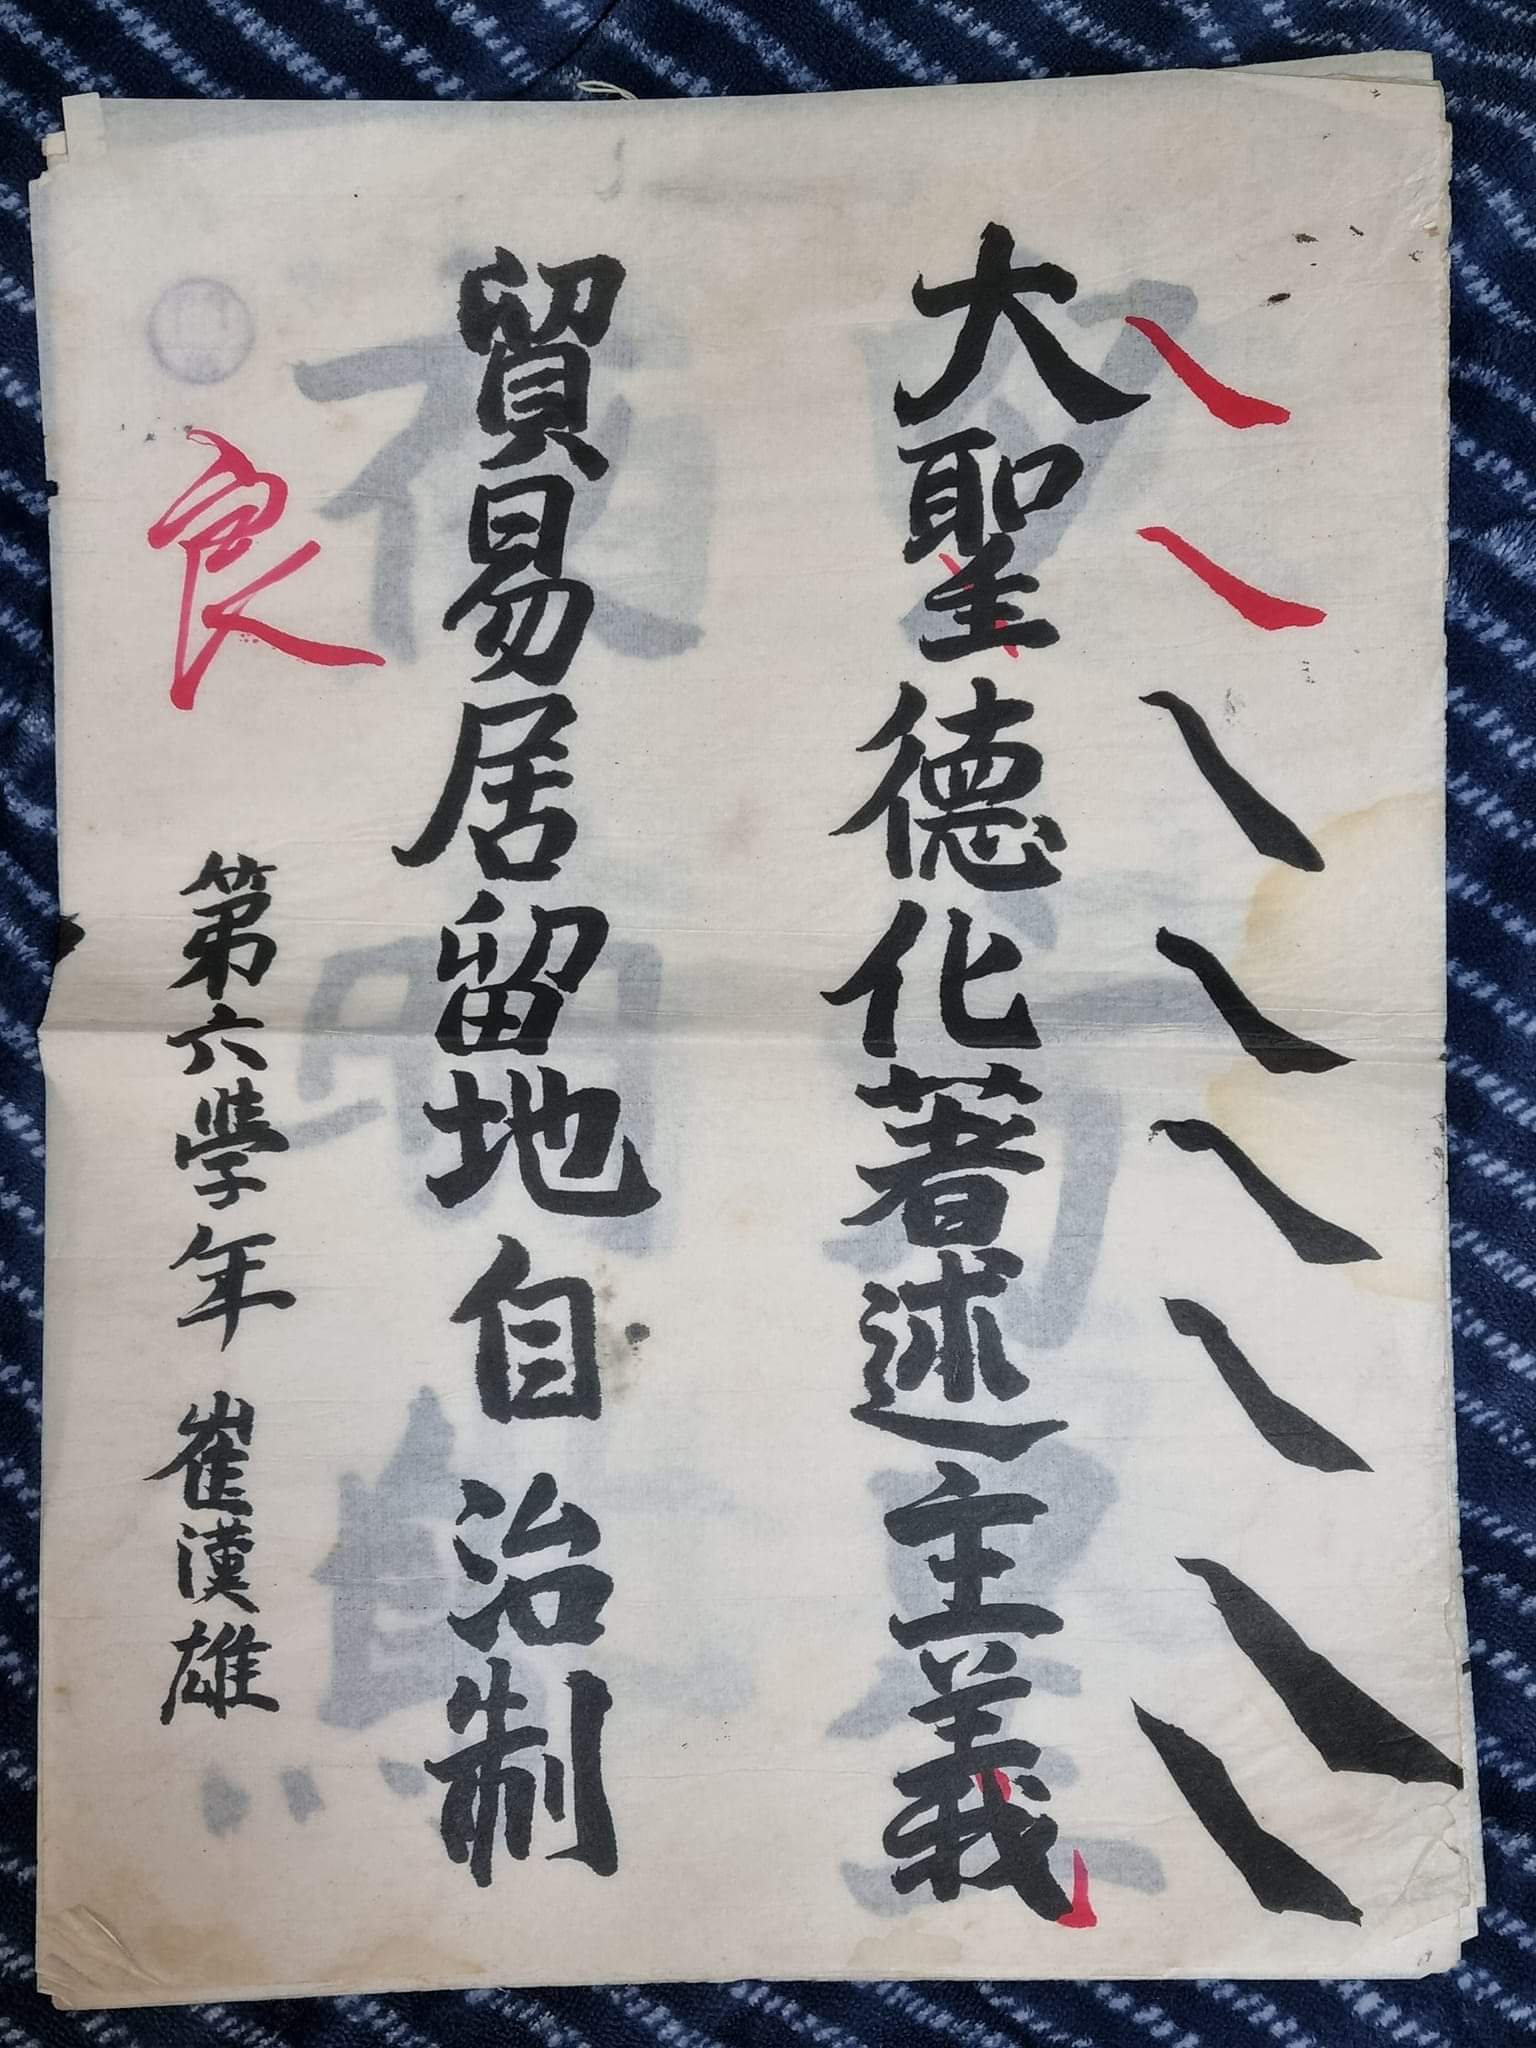 大聖德化著述主義
貿易居留地自治制
第六學年 崔漢雄
良